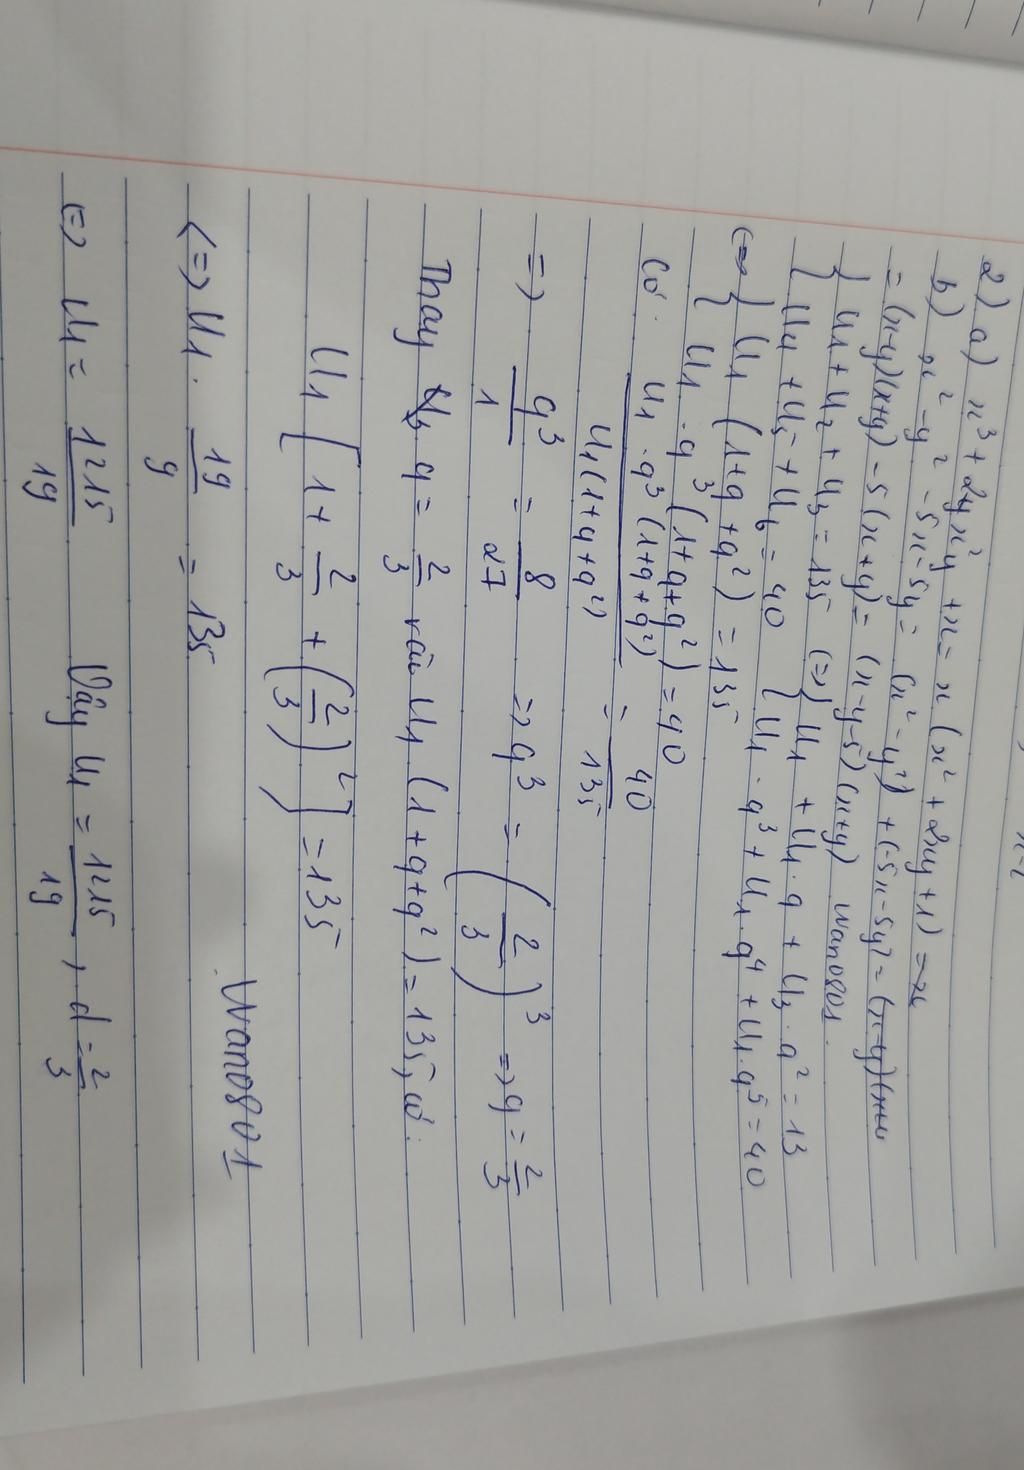 2) a) x³ + 2x²y + x = x (x² + 2xy + 1) = x
b) x² - y² - 5x - 5y = (x² - y²) + (-5x - 5y) = (x-y)(x+y
= (x-y)(x+y) - 5(x+y) = (x-y-5)(x+y) wano801.
{ U1 + U2 + U3 = 135 (=) { U1 + U1.q + U3.q² = 13
{ U4 + U5 + U6 = 40 { U1.q³ + U1.q⁴ + U1.q⁵ = 40
(=) { U1 (1+q+q²) = 135
{ U1.q³ (1+q+q²) = 40
Có. U1.q³ (1+q+q²) / U1(1+q+q²) = 40/135
=> q³/1 = 8/27 => q³ = (2/3)³ => q = 2/3
Thay q = 2/3 vào U1 (1+q+q²) = 135, có.
U1 [1 + 2/3 + (2/3)²] = 135
Wano801
(=) U1. 19/9 = 135
(=) U1 = 1215/19 Vậy U1 = 1215/19, d = 2/3